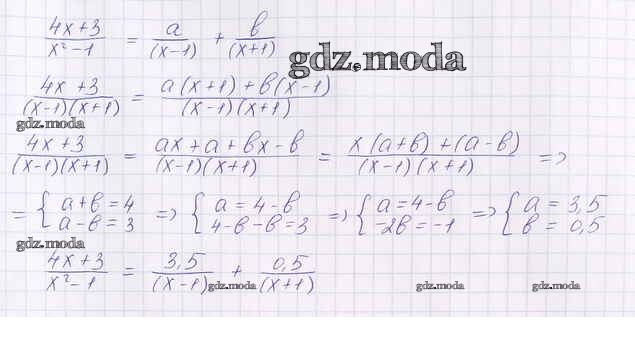 (4x+3)/(x²-1) = a/(x-1) + в/(x+1)
gdz.moda
(4x+3)/((x-1)(x+1)) = (a(x+1)+в(x-1))/((x-1)(x+1))
gdz.moda
(4x+3)/((x-1)(x+1)) = (ax+a+вx-в)/((x-1)(x+1)) = (x(a+в)+(a-в))/((x-1)(x+1)) =>
= { a+в=4 => { a=4-в => { a=4-в => { a=3,5
a-в=3 4-в-в=3 -2в=-1 в=0,5
gdz.moda
(4x+3)/(x²-1) = 3,5/(x-1) + 0,5/(x+1)
gdz.moda gdz.moda gdz.moda